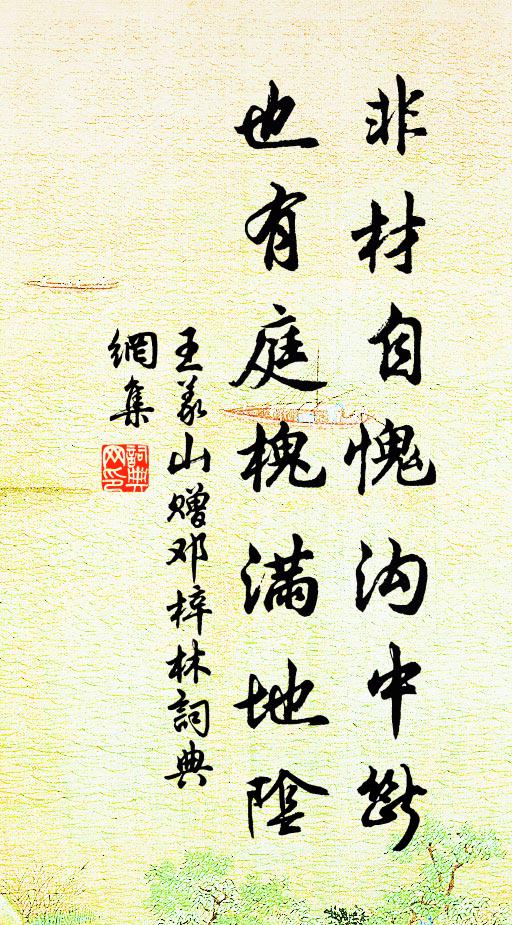 非材自愧沟中斷
也有庭槐满地陰
王义山赠邓梓林詞典
網集
詞典网印